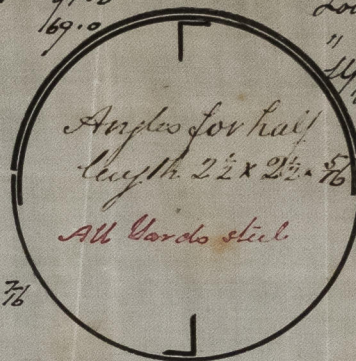 69.0
"
Angles for half
length 2½ x 2½ x 5/16
All Yards steel
7/16